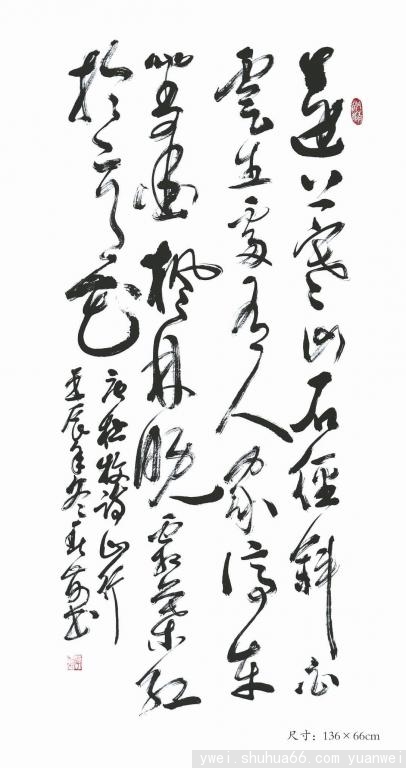 遠上寒山石徑斜白
雲生處有人家停車
坐愛楓林晚霜葉紅
於二月花
唐杜牧詩山行
壬辰年冬書
尺寸：136×66cm
ywei.shuhua66.com yuanwei